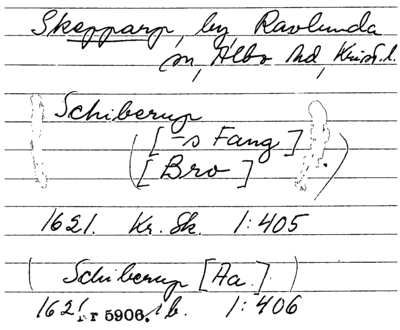 Skepparp, by, Ravlunda
sn, Albo hd, Krist. l.
Schiberup
( [-s Fang]
[Bro] . )
1621. Kr. Sk. 1:405
( Schiberup [Aa.] )
1621. r 5906. ib. 1:406